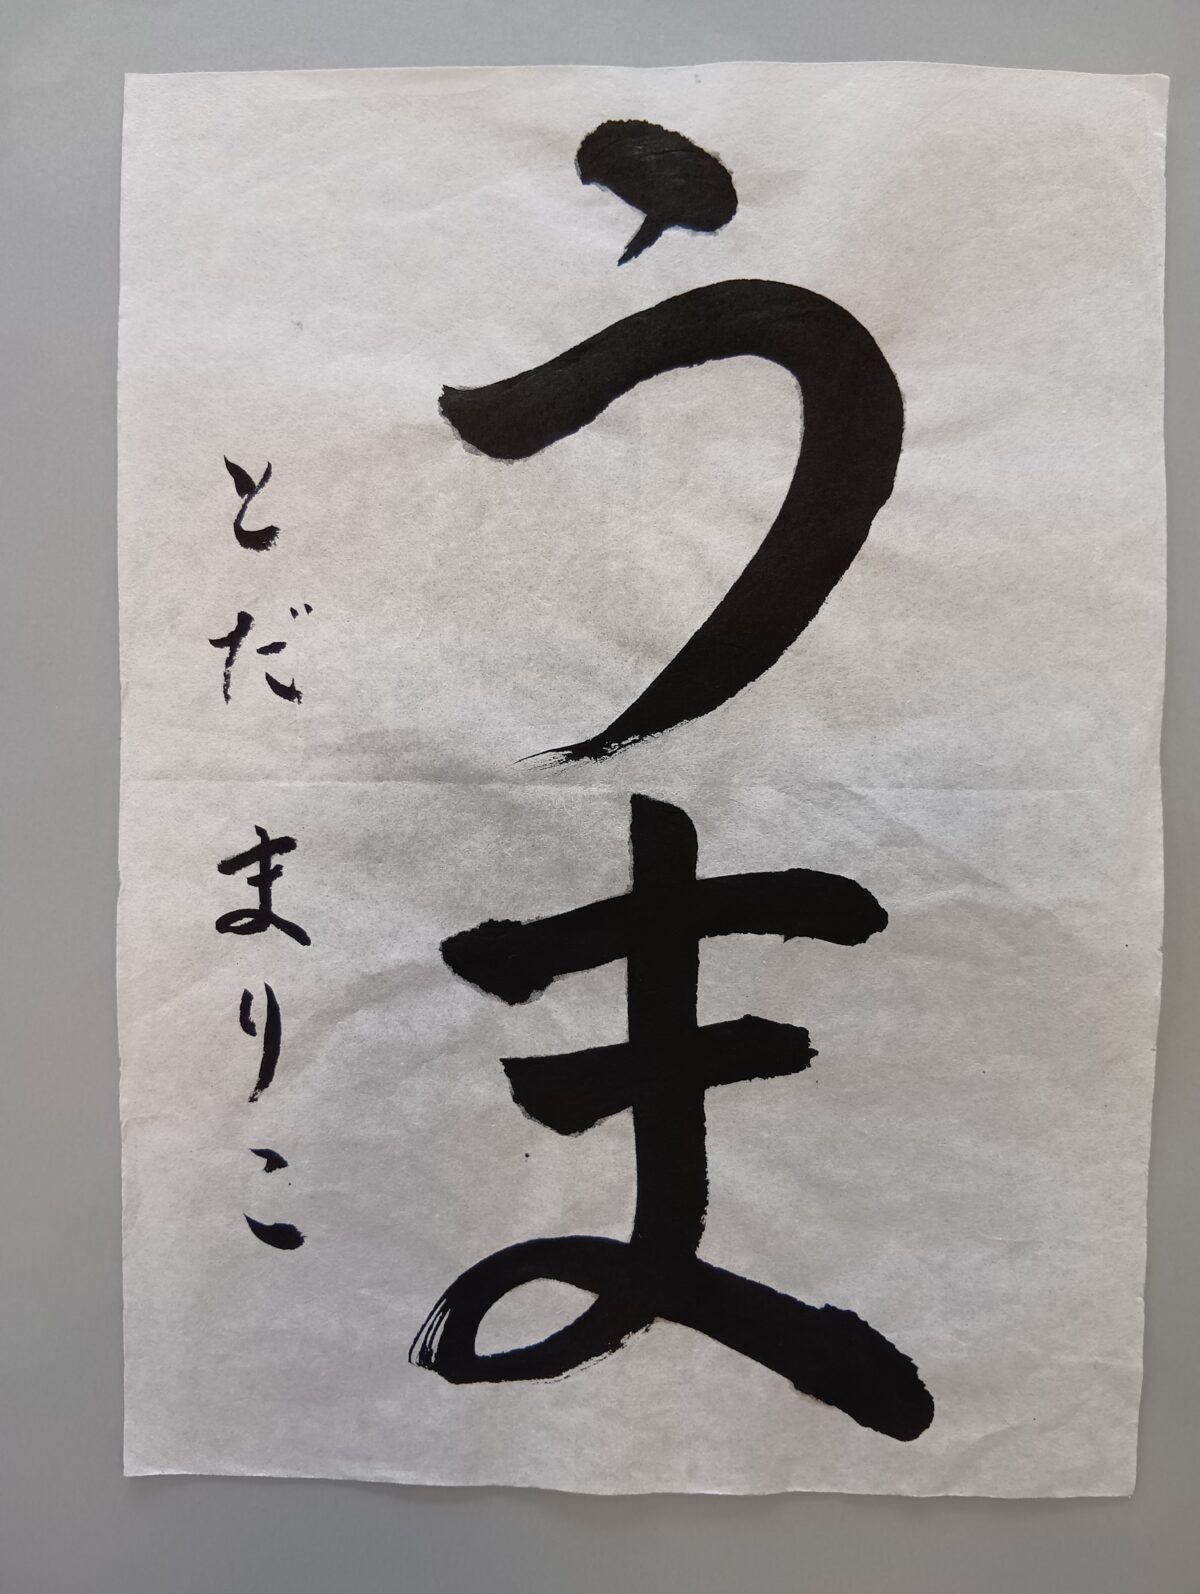 うま
とだ まりこ